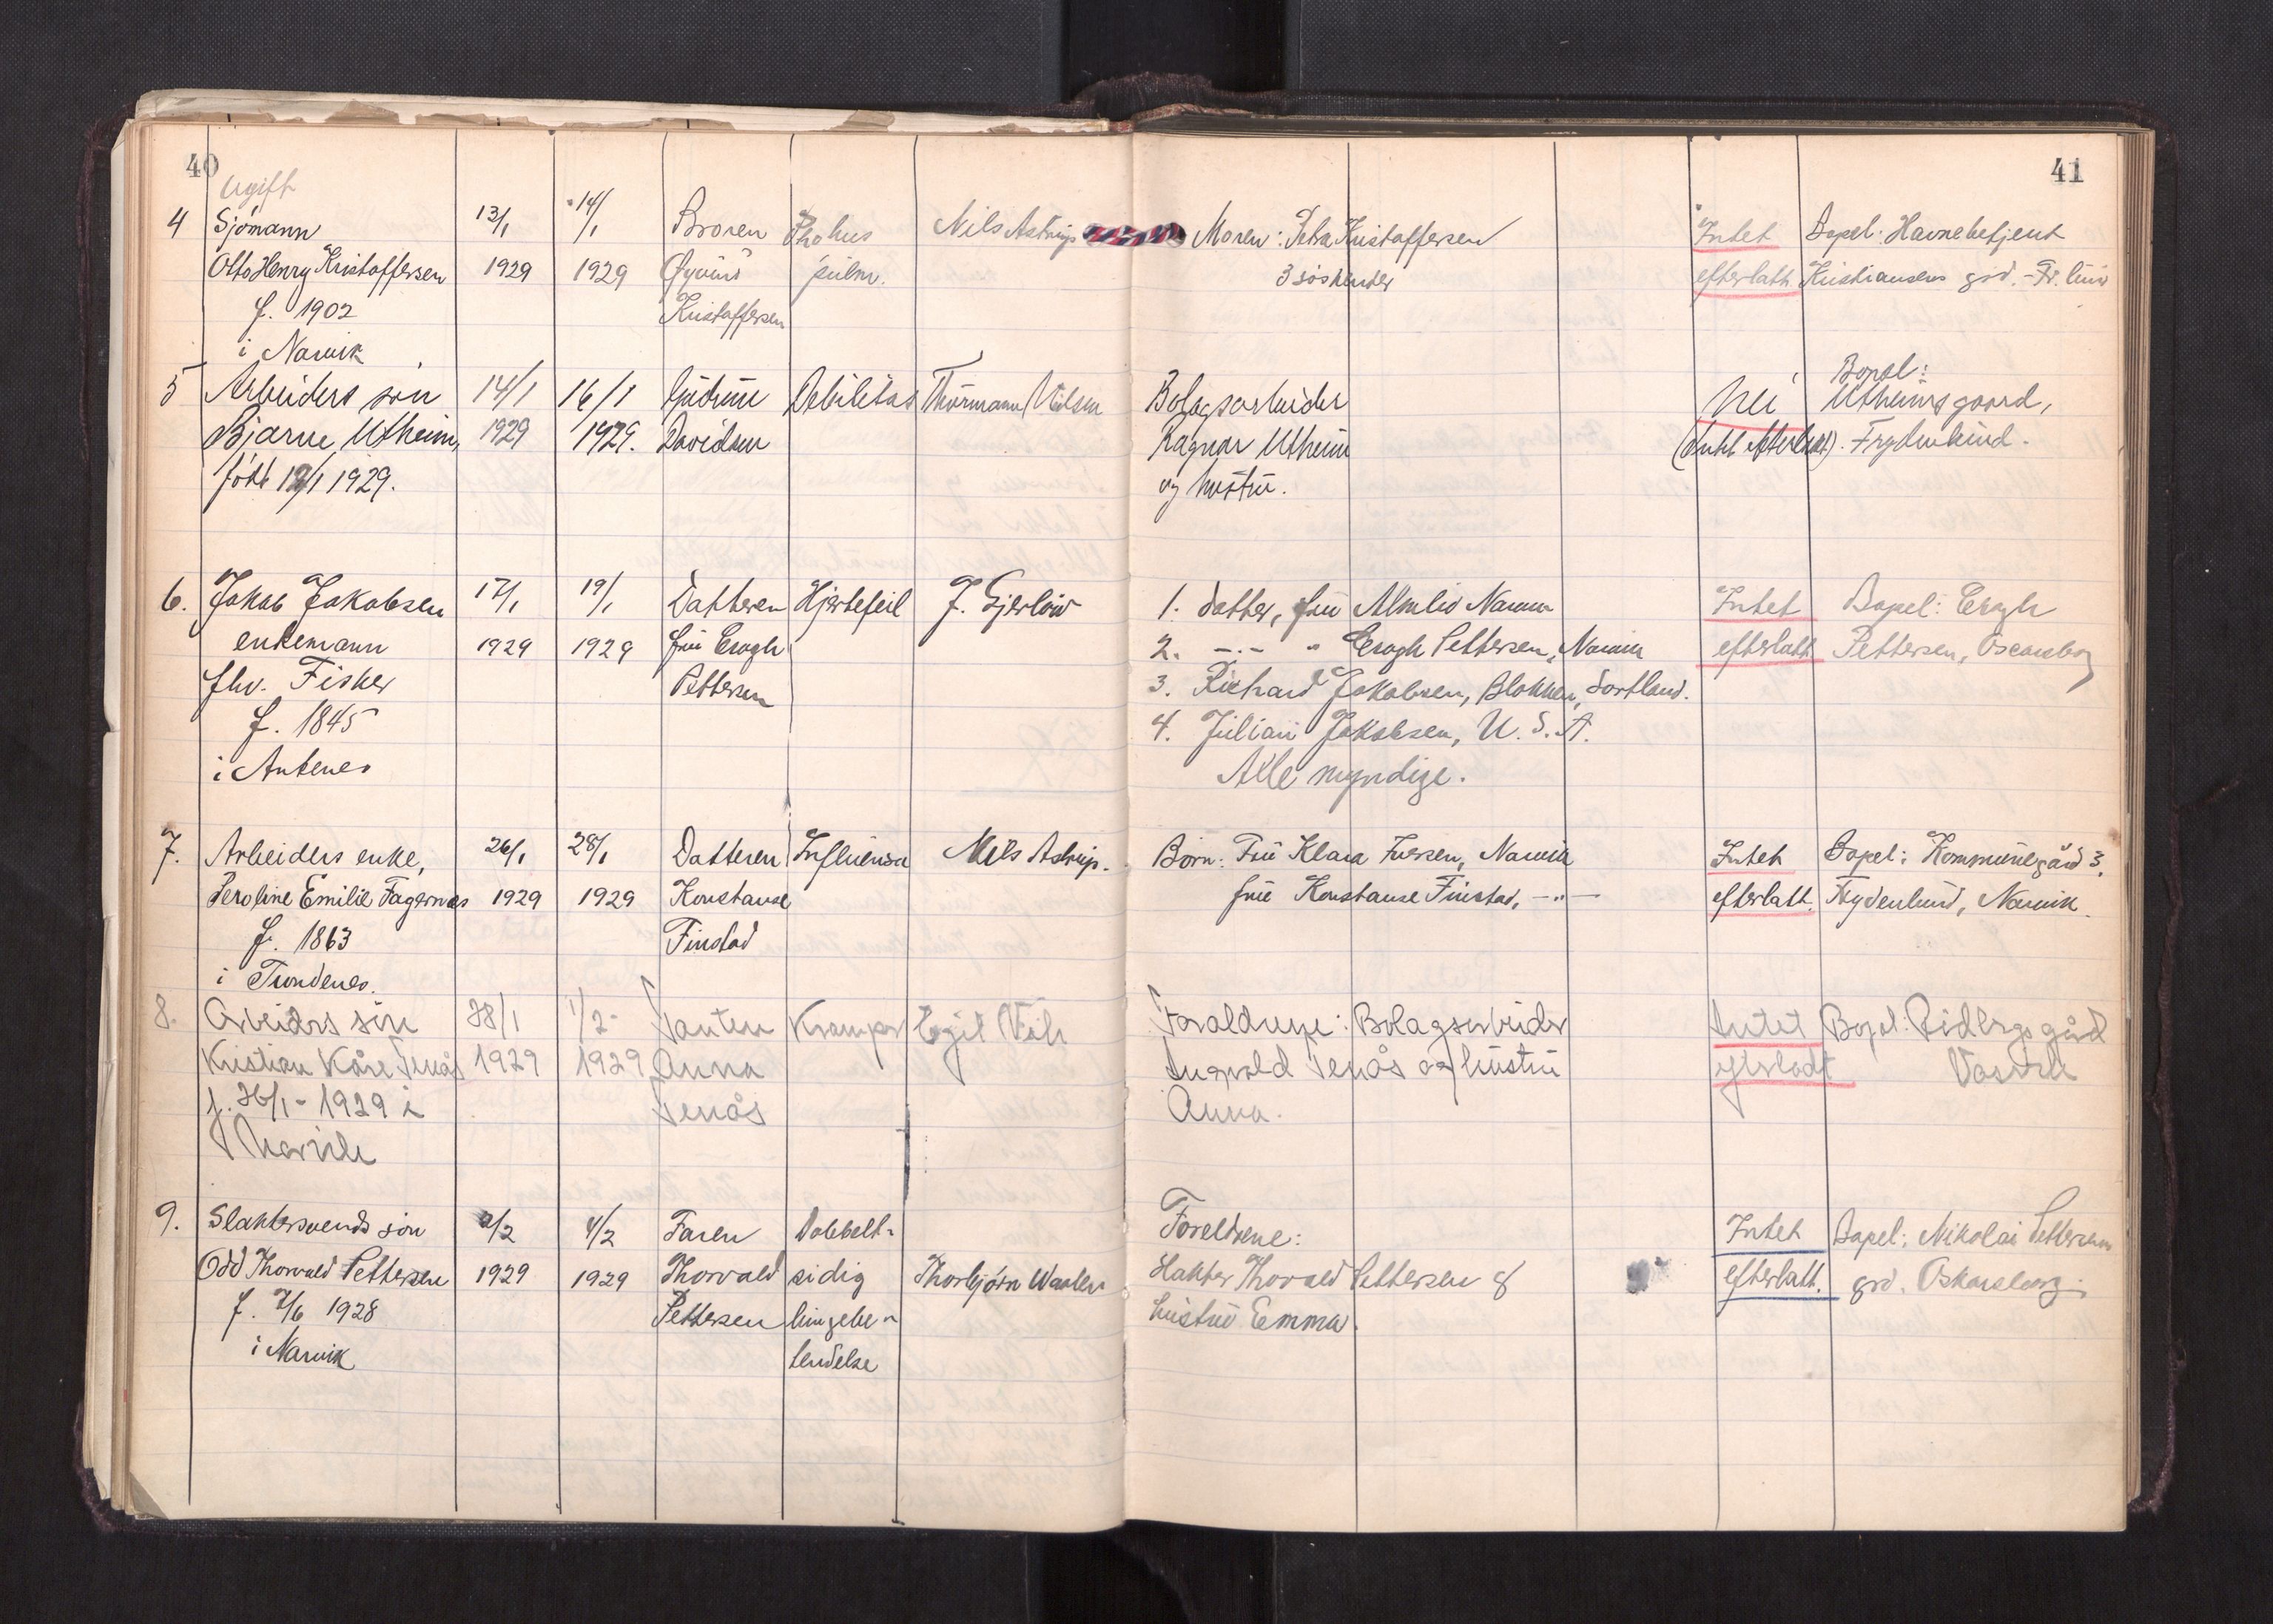 40
41
Ugift
4 Sjömann 13/1 14/1 Broren Nils Astrup Moren: Petra Kristoffersen Intet Bopel: Havnebetjent
Otto Henry Kristoffersen 1929 1929 Øyvind pulm. 3 söskender efterlatt. Kristiansens grd. - Fr. lund
f. 1902 Kristoffersen
i Narvik
Bopæl:
5 Arbeiders sön 14/1 16/1 Gudrun Debilitas Thormann Nilsen Bolagsarbeider Nei Utheimsgaard,
Bjarne Utheim, 1929 1929. Davidsen Ragnar Utheim (Intet efterlatt). Frydenlund.
född 12/1 1929. og hustru.
6. Jakob Jakobsen 17/1 19/1 Datteren Hjertefeil J. Gjerlöw 1. datter, fru Almlid Narvik Intet Bopel: Eragh
enkemann 1929 1929 fru Eragh 2. -.- " Eragh Pettersen, Narvik efterlatt Pettersen, Oscarsborg
fhv. Fisker Pettersen 3. Richard Jakobsen, Blokken, Sortland.
f. 1845 4. Julian Jakobsen, U.S.A.
i Ankenes Alle myndige.
7. Arbeiders enke, 26/1 28/1 Datteren Influensa Nils Astrup. Börn: Fru Klara Iversen, Narvik Intet Bopel: Kommunegård 3,
Peroline Emilie Fagernes 1929 1929 Konstanse fru Konstanse Finstad, -"- efterlatt. Frydenlund, Narvik.
f. 1863 Finstad
i Trondenes.
8. Arbeiders sön 28/1 1/2- Tanten Kramper Egil Foræeldrene: Bolagsarbeider Intet Bopel: gård
Kristian Kåre Tenås 1929 1929 Anna Ingvald Tenås og hustru efterladt
f. 26/1- 1929 i Tenås Anna.
Narvik
9. Slaktersvends sön 2/2 4/2 Faren Dobbelt- Foreldrene: Intet Bopel: Nikolai Pettersens
Odd Thorvald Pettersen 1929 1929 Thorvald sidig Thorbjörn Slakter Thorvald Pettersen & efterlatt. grd. Oskarsborg.
f. 7/6 1928 Pettersen lungebe- hustru Emma.
i Narvik tendelse